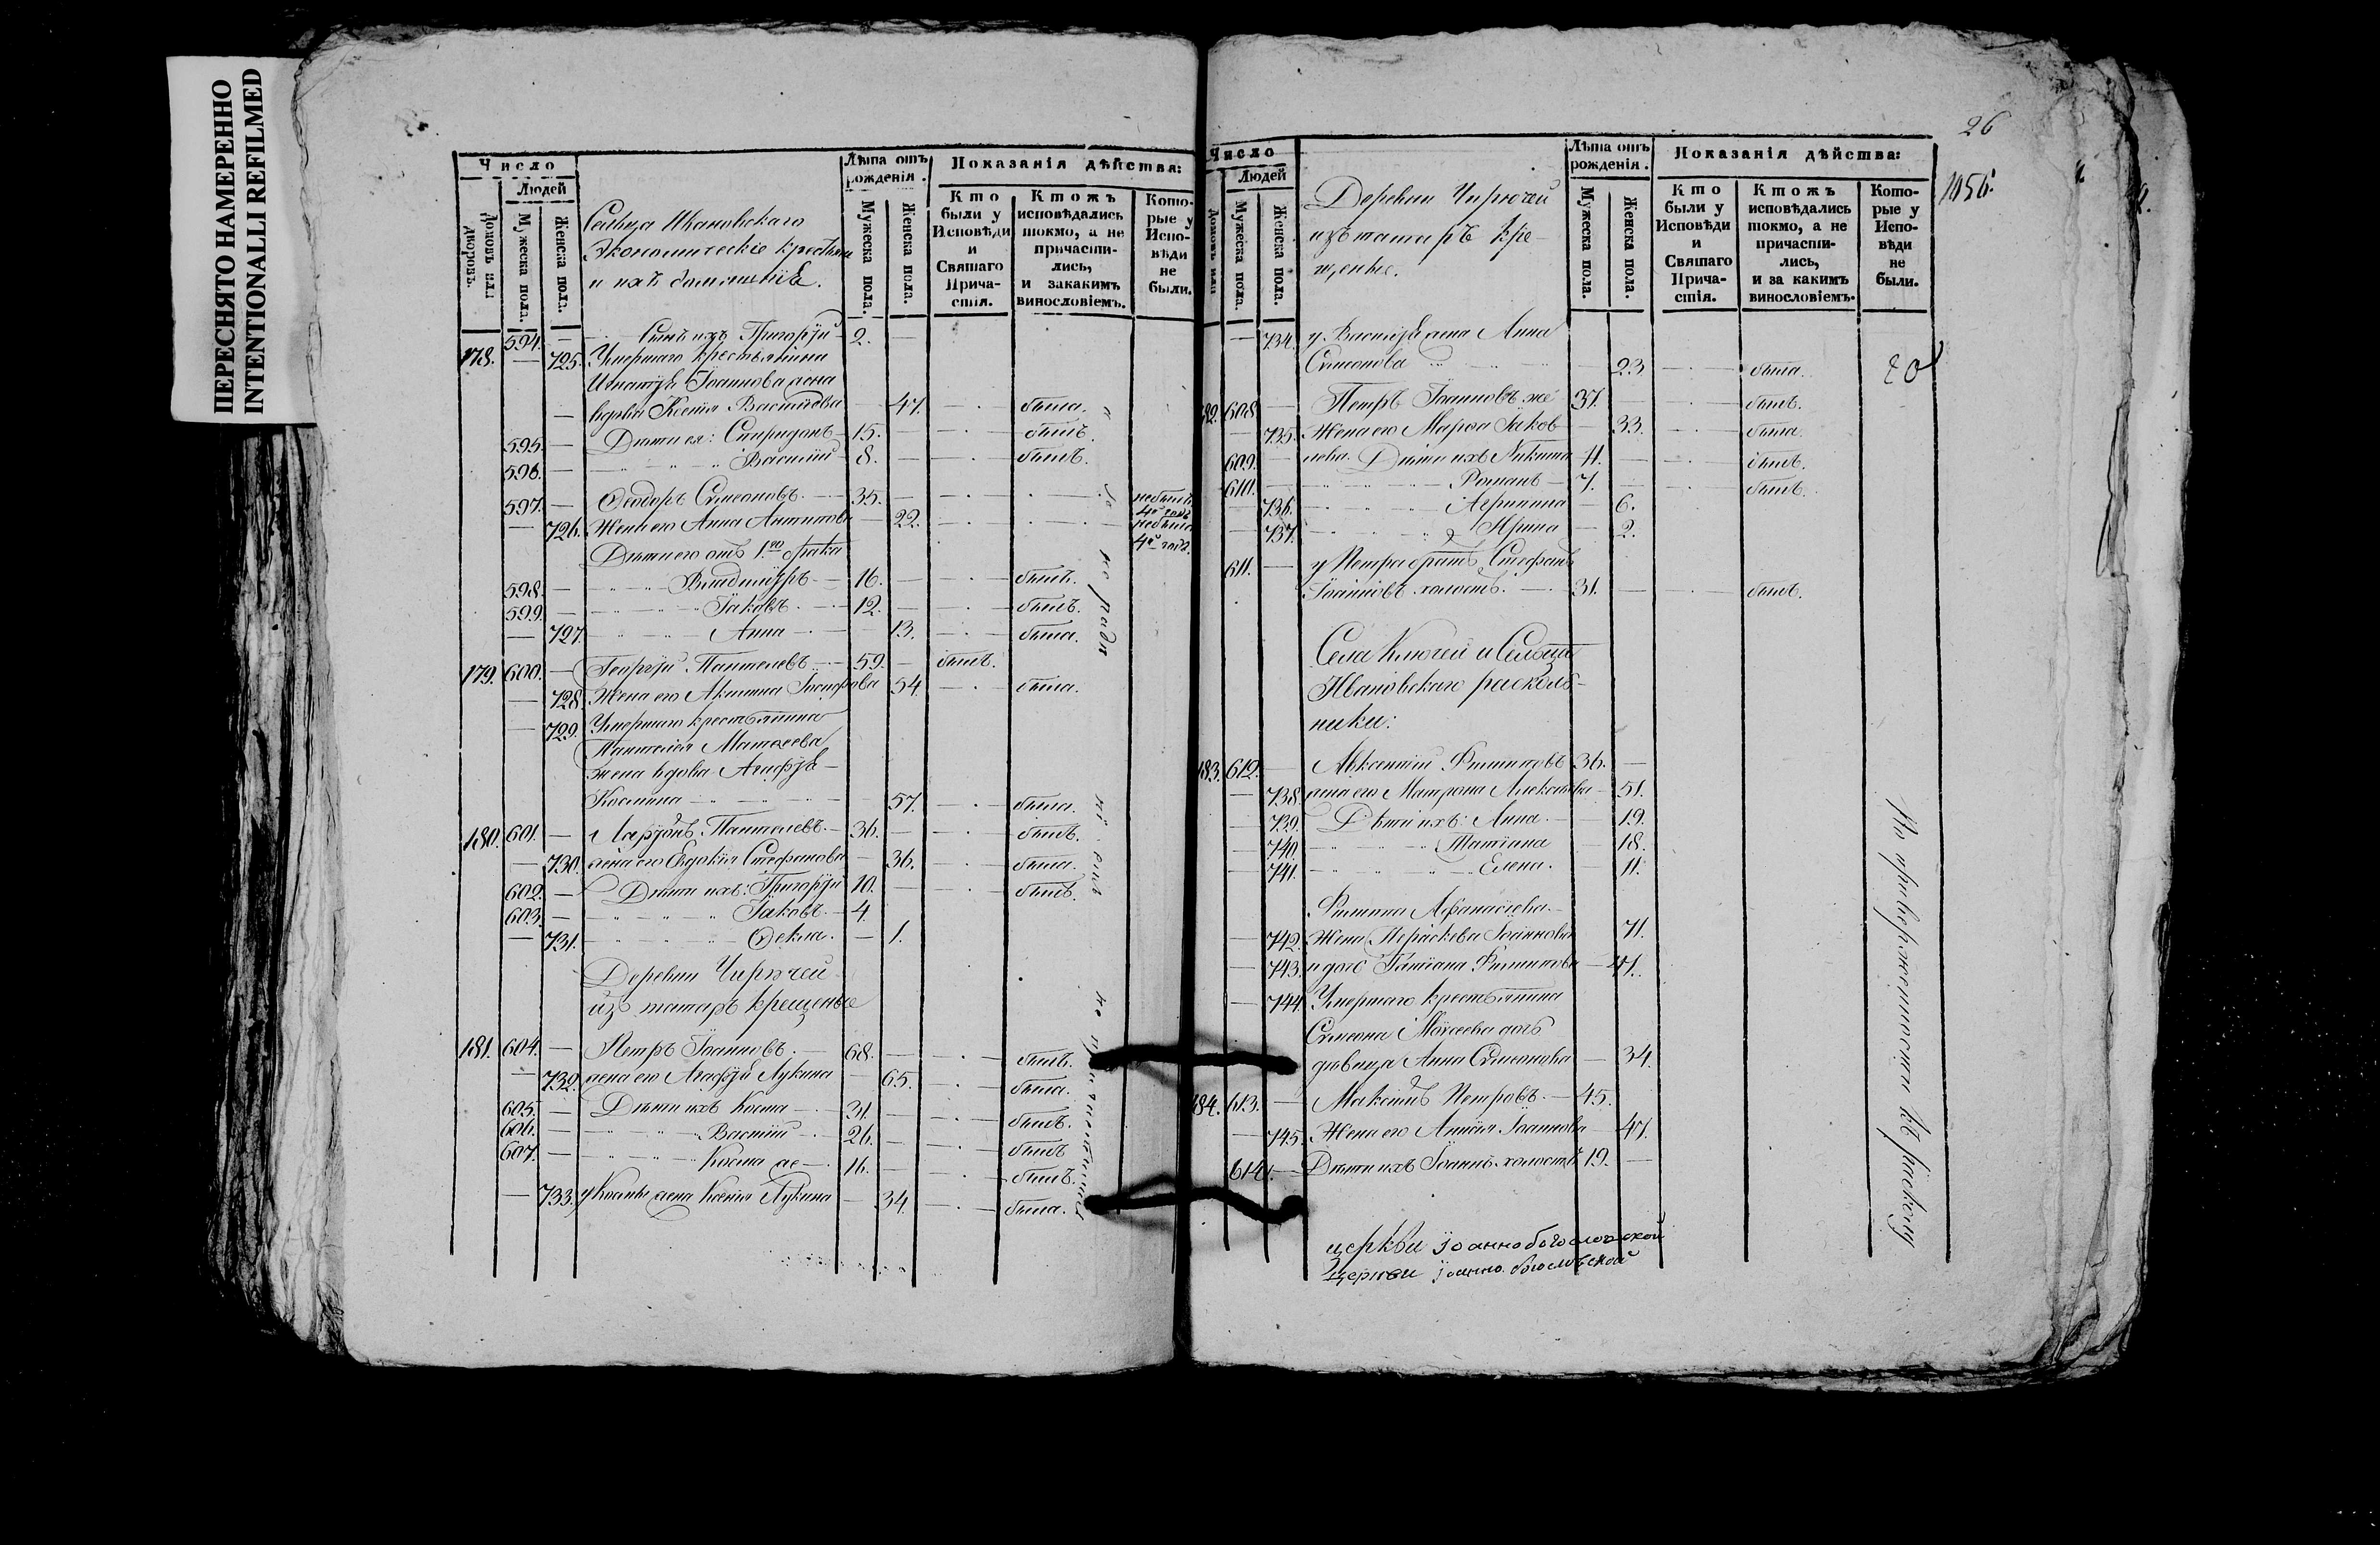 ПЕРЕСНЯТО НАМЕРЕННО
INTENTIONALLI REFILMED
Число
Людей
Домовъ или дворовъ.
Мужеска пола.
Женска пола.
Сельца Ивановскаго
Экономическіе крестьяне
и ихъ домашніе.
Лѣта отъ рожденія.
Мужеска пола.
Женска пола.
Показанія дѣйства:
Кто были у Исповѣди и Святаго Причастія.
Ктожъ исповѣдались токмо, а не причастились, и закакимъ винословіемъ.
Которые у Исповѣди не были.
594. — Сынъ ихъ Григорій 2. —
178. — 725. Умершаго крестьянина
Игнатія Іоаннова жена
вдова Ксенія Васильева — 47. была.
595. — Дѣти ея: Спиридонъ 15. былъ.
596. — Василій 8. — былъ.
597. — Ѳеодоръ Симеоновъ. 35. — небылъ 4й годъ
— 726. Жена его Анна Антипова — 22. небыла 4й годъ.
Дѣти его отъ 1го брака
598. — Владиміръ — 16. — былъ.
599. — Іаковъ. — 12. — былъ.
— 727. Анна — 13. — была.
179. 600. — Георгій Пантелеевъ — 59. — былъ.
— 728. Жена его Акилина Іосифова 54 была.
— 729. Умершаго крестьянина
Пантелея Матвеева
жена вдова Агафія
Космина — 57. была.
180. 601. — Ларіонъ Пантелеевъ. — 36. — былъ.
— 730. жена его Евдокія Стефанова — 36. была.
602. — Дѣти ихъ: Григорій 10. — былъ.
603. — Іаковъ. — 4.
— 731. Ѳекла. — 1.
Деревни Чирючей
изъ татаръ крещеные
181. 604. — Петръ Іоанновъ. — 68. — былъ.
— 732. жена его Агафія Лукина — 65. была.
605. — Дѣти ихъ Косма — 31. — былъ.
606. — Василій — 26. — былъ
607. — Косма же — 16. — былъ.
— 733. у Космы жена Ксенія Лукина — 34 — была.
26
1056.
Число
Людей
Домовъ или
Мужеска пола
Женска пола.
Деревни Чирючей
изъ татаръ кре-
щеные.
Лѣта отъ рожденія.
Мужеска пола.
Женска пола.
Показанія дѣйства:
Кто были у Исповѣди и Святаго Причастія.
Ктожъ исповѣдались токмо, а не причастились, и за какимъ винословіемъ.
Которые у Исповѣди не были.
— 734. у Василія жена Анна
Симеонова — 23 — была.
82. 608. — Петръ Іоанновъ же 37. — былъ.
— 735. Жена его Марѳа Іаков- — 33. — была.
609. — лева. Дѣти ихъ Никита 11. — былъ.
610. — Романъ — 7. — былъ.
— 736. Агрипина — 6.
— 737. Ирина — 2.
611. — у Петра братъ Стефанъ
Іоанновъ холостъ. — 31. — былъ.
Села Ключей и Сельца
Ивановскаго расколь-
ники:
183. 612. — Авксентій Филиповъ 36. —
— 738. жена его Матрона Алексѣева — 51.
— 739. Дѣти ихъ: Анна. — 19.
— 740. Татіана — 18.
— 741. Елена. — 11.
Филипа Афанасіева
— 742. Жена Параскева Іоаннова 71.
— 743. и дочь Татіана Филипова — 41.
— 744. Умершаго крестьянина
Симеона Моисеева дочь
дѣвица Анна Симеонова — 34.
184. 613. — Максимъ Петровъ. — 45.
— 745. Жена его Анисія Іоаннова — 47.
614. — Дѣти ихъ Іоаннъ холостъ 19. —
По приверженности къ расколу
церкви Іоаннобогословской
церкви Іоанно. богословской